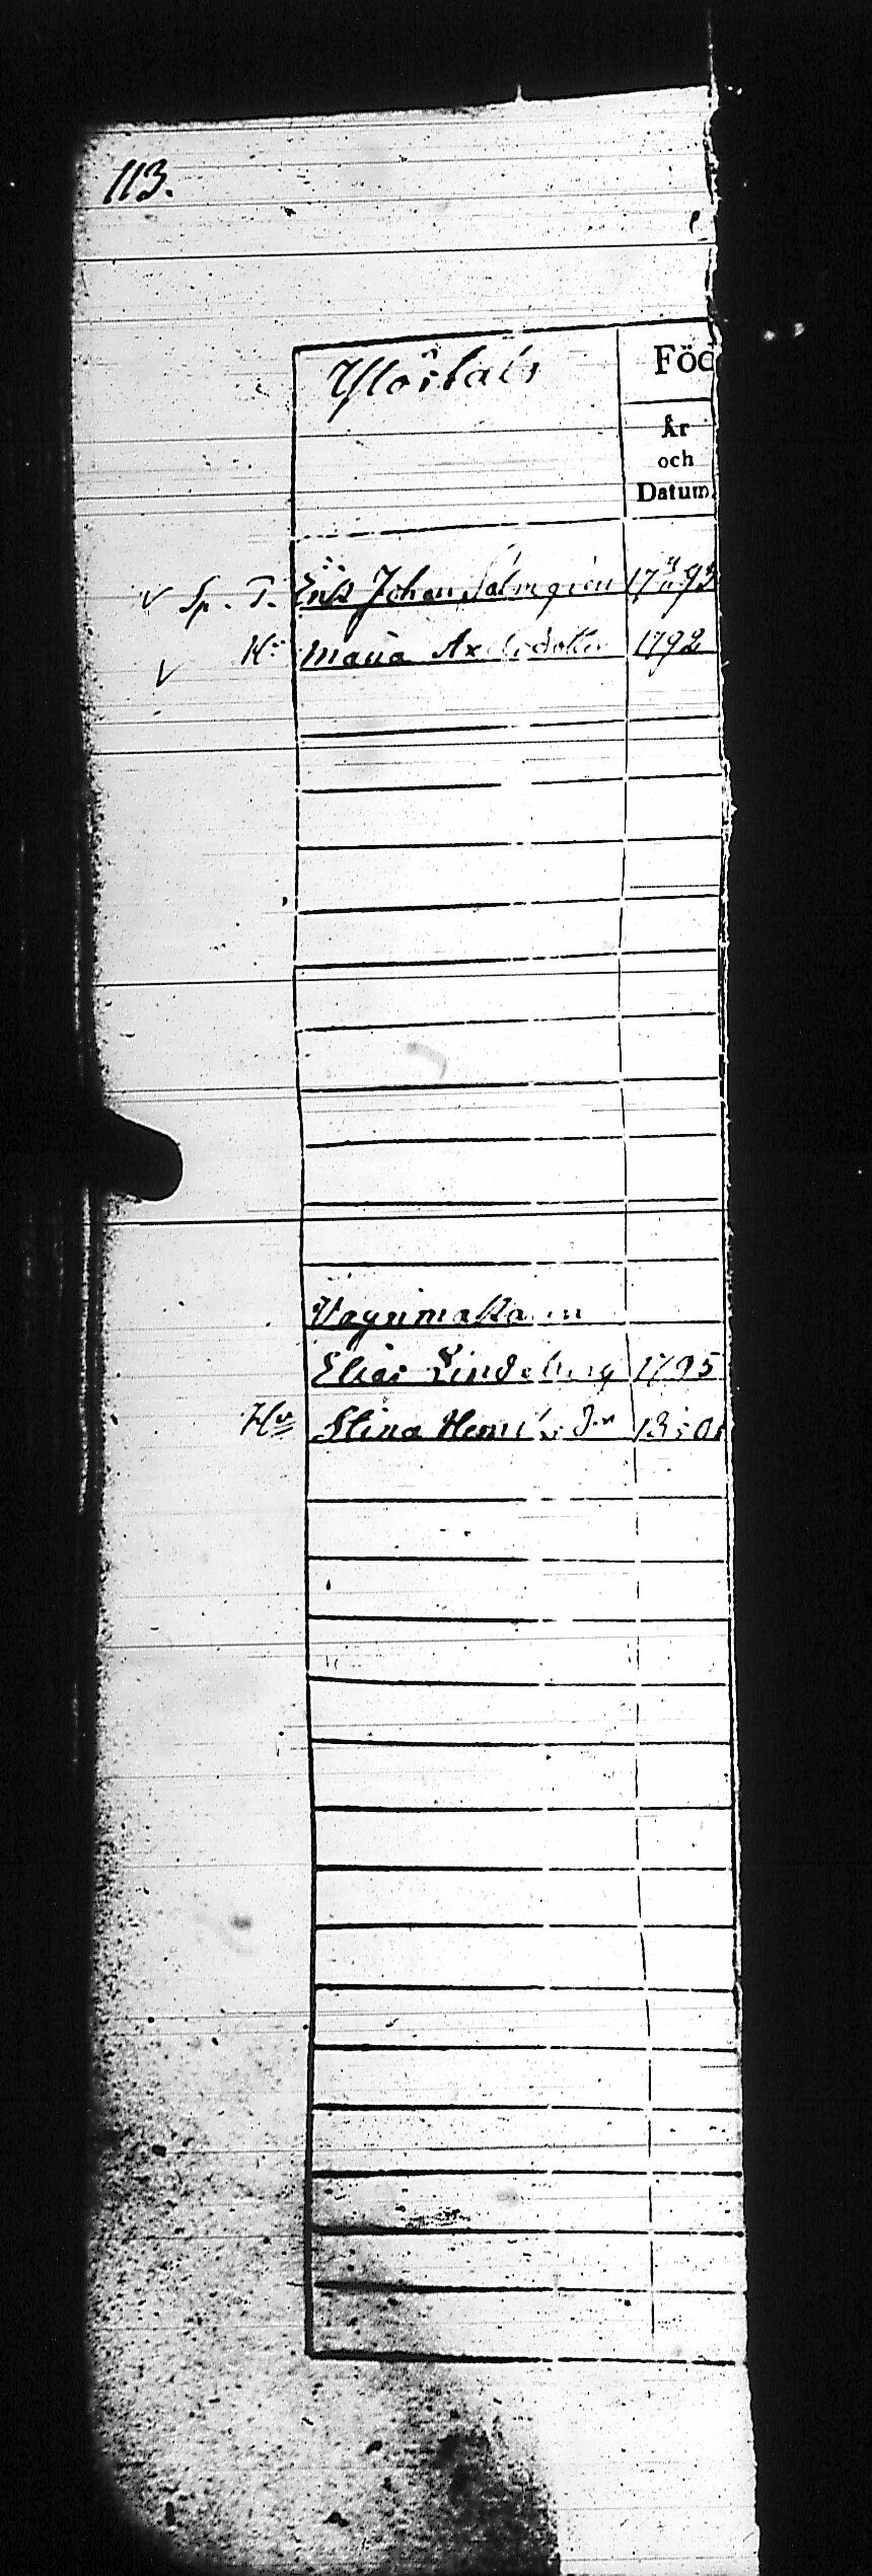 113.
Föd
År
och
Datum.
V Sp. T. Erik Johan Palmgren 1793
V Hu Maria Axelsdotter 1792
Vagnmakaren
Elias Lindeberg 1795
Hu Stina Henr